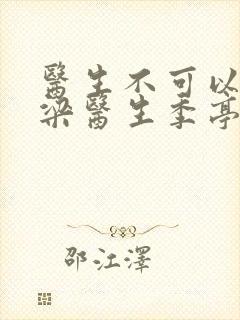 醫生不可以
梁醫生季亭
邵江澤